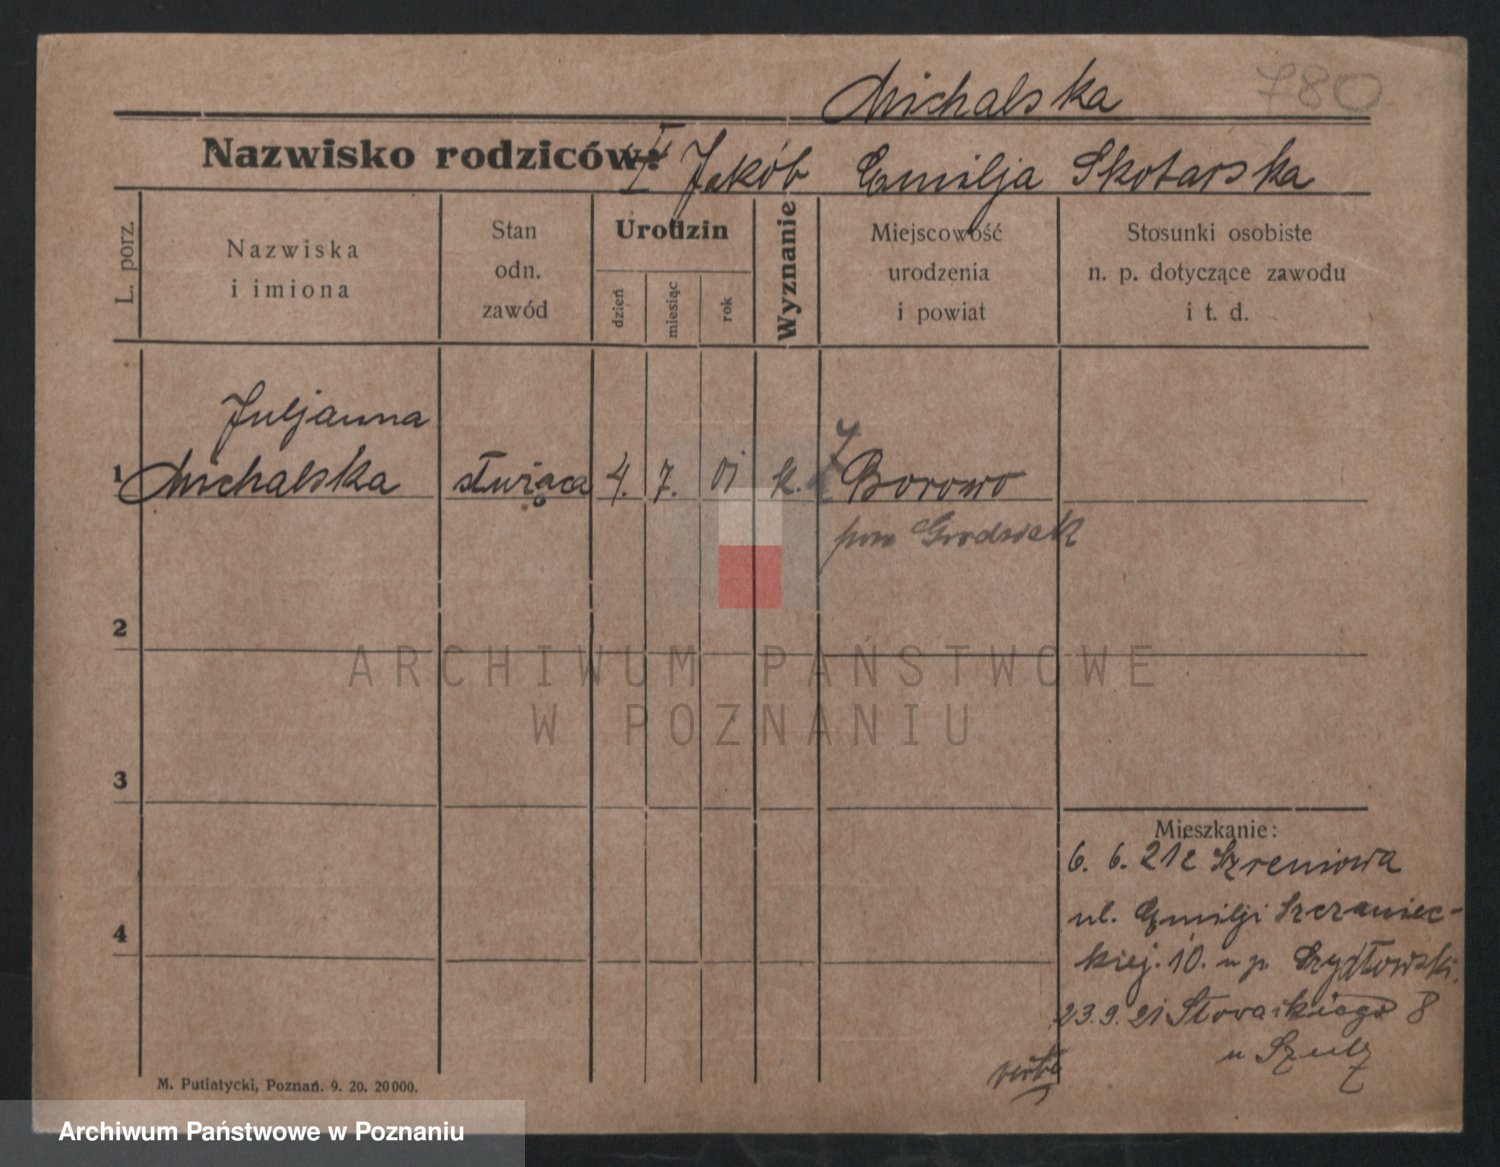 Michalska 780
Nazwisko rodziców: Jakób Emilja Skotarska
L. porz.
Nazwiska
i imiona
Stan
odn.
zawód
Urodzin
dzień
miesiąc
rok
Wyznanie
Miejscowość
urodzenia
i powiat
Stosunki osobiste
n. p. dotyczące zawodu
i t. d.
Juljanna
1 Michalska służąca 4. 7. 01 k. Borowo
pow Grodzisk
2
ARCHIWUM PAŃSTWOWE
W POZNANIU
3
Mieszkanie:
6. 6. 21 z Szreniowa
ul. Emilji Szczaniec-
4
kiej. 10. u p. Szydłowski.
23.9.21 Słowackiego 8
u Szulz
M. Putiatycki, Poznań. 9. 20. 20000.
Archiwum Państwowe w Poznaniu